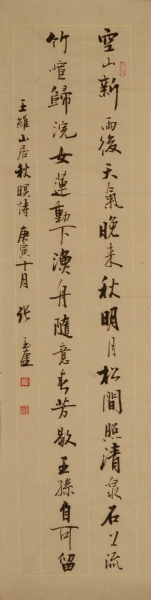 空山新雨後天氣晚来秋明月松間照清泉石上流
竹喧歸浣女蓮動下漁舟隨意春芳歇王孫自可留
王維山居秋暝詩 庚寅十月 張玉